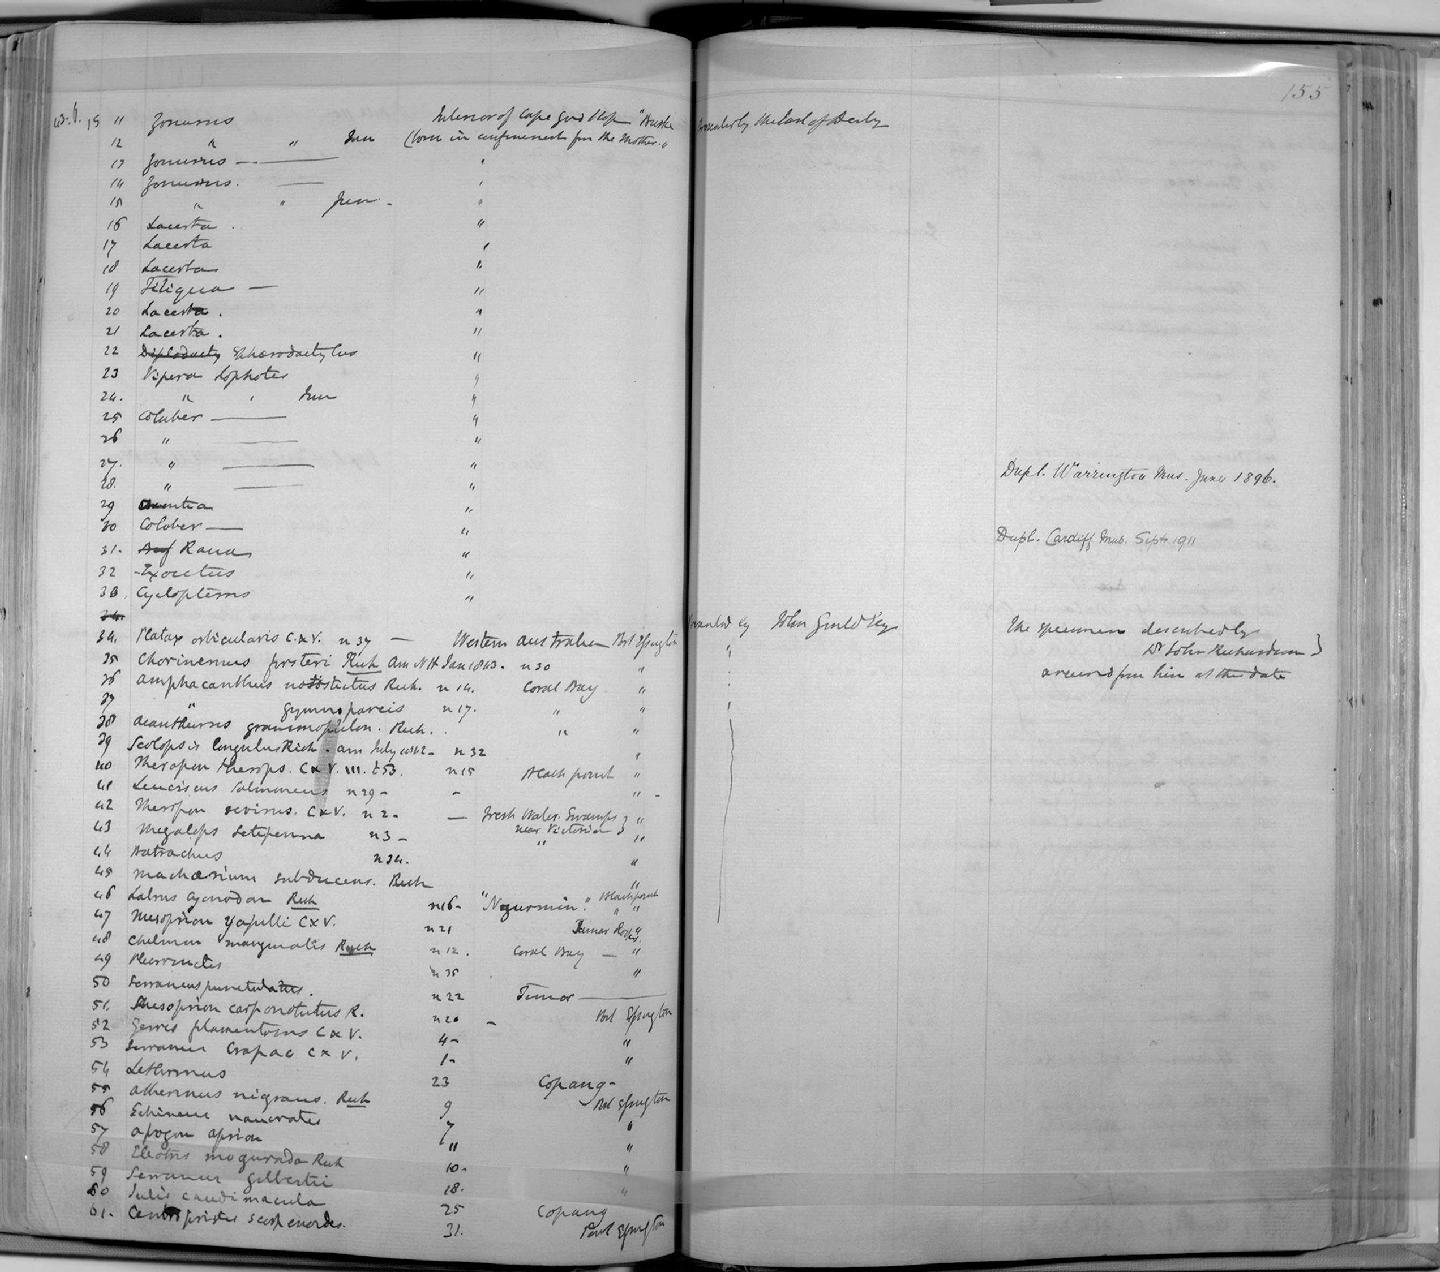 155
43.6.15 " Zonurus Interior of Cape Good Hope Presented by the Earl of Derby
12 " " Jun (born in confinement from the Mother.
13 Zonurus — "
14 Zonurus. — "
15 " " Jun. "
16 Lacerta . "
17 Lacerta "
18 Lacerta "
19 Tiliqua — "
20 Lacerta . "
21 Lacerta . "
22 Diplodacty "
23 Vipera Lophotes "
24. " " Jun "
25 Coluber — "
26 " — "
27. " — " Dupl. Warrington Mus. June 1896.
28. " — "
29 "
30 Coluber — "
31. Rana " Dupl. Cardiff Mus. Sept. 1911
32 Exocetus "
33 Cyclopterus "
34.
34. Platax orbicularis C.&V. n 37 — Western Australia Port Essington Presented by John Gould Esq The specimen described by
35 Chorinemus forsteri Rich Ann NH Jan 1843. n 30 " " Dr John Richardson
36 Amphacanthus notostictus Rich. n 14. Coral Bay " received from him at this date
37 " gymnopareis n 17. " " "
38 Acanthurus grammoptilon. Rich. . " "
39 Scolopsis longulus Rich. Ann July 1842 - n 32 "
40 Therapon theraps. C&V. III. t 53. n 15 Black point "
41 Leuciscus Salmoneus n 29 - - " -
42 Therapon C&V. n 2 - — Fresh Water Swamps "
43 Megalops Setipinna n 3 - near Victoria " "
44 Batrachus n 34. "
45 Machaerium subducens. Rich "
46 Labrus Rich n 16 - Black point
47 Mesoprion yapilli C&V. n 21 " "
48 Chelmon marginalis Rich n 12. Coral Bay — "
49 Pleuronectes n 35 "
50 Serranus punctulatus. n 22 Timor —
51. Mesoprion carponotatus R. n 20 - Port Essington
52 Gerres filamentosus C&V. 4 - "
53 Serranus Crapao C&V. 1 - "
54 Lethrinus 23 Copang -
55 Atherinus nigrans. Rich 9 Port Essington
56 Echineis naucrates 7 "
57 Apogon aprion 11 "
58 Eleotris mogurnda Rich 10 - "
59 Serranus gilbertii 18. "
60 Julis caudimacula 25 Copang
61. Centropristes scorpenoides. 31. Port Essington